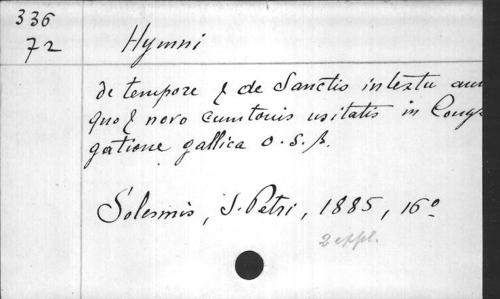 336
72
Hymni
de tempore & de Sanctis in textu an
quo & novo cum tonis usitatis in Cong
gatione gallica O.S.B.
Solesmis, S. Petri, 1885, 16°
2 expl.